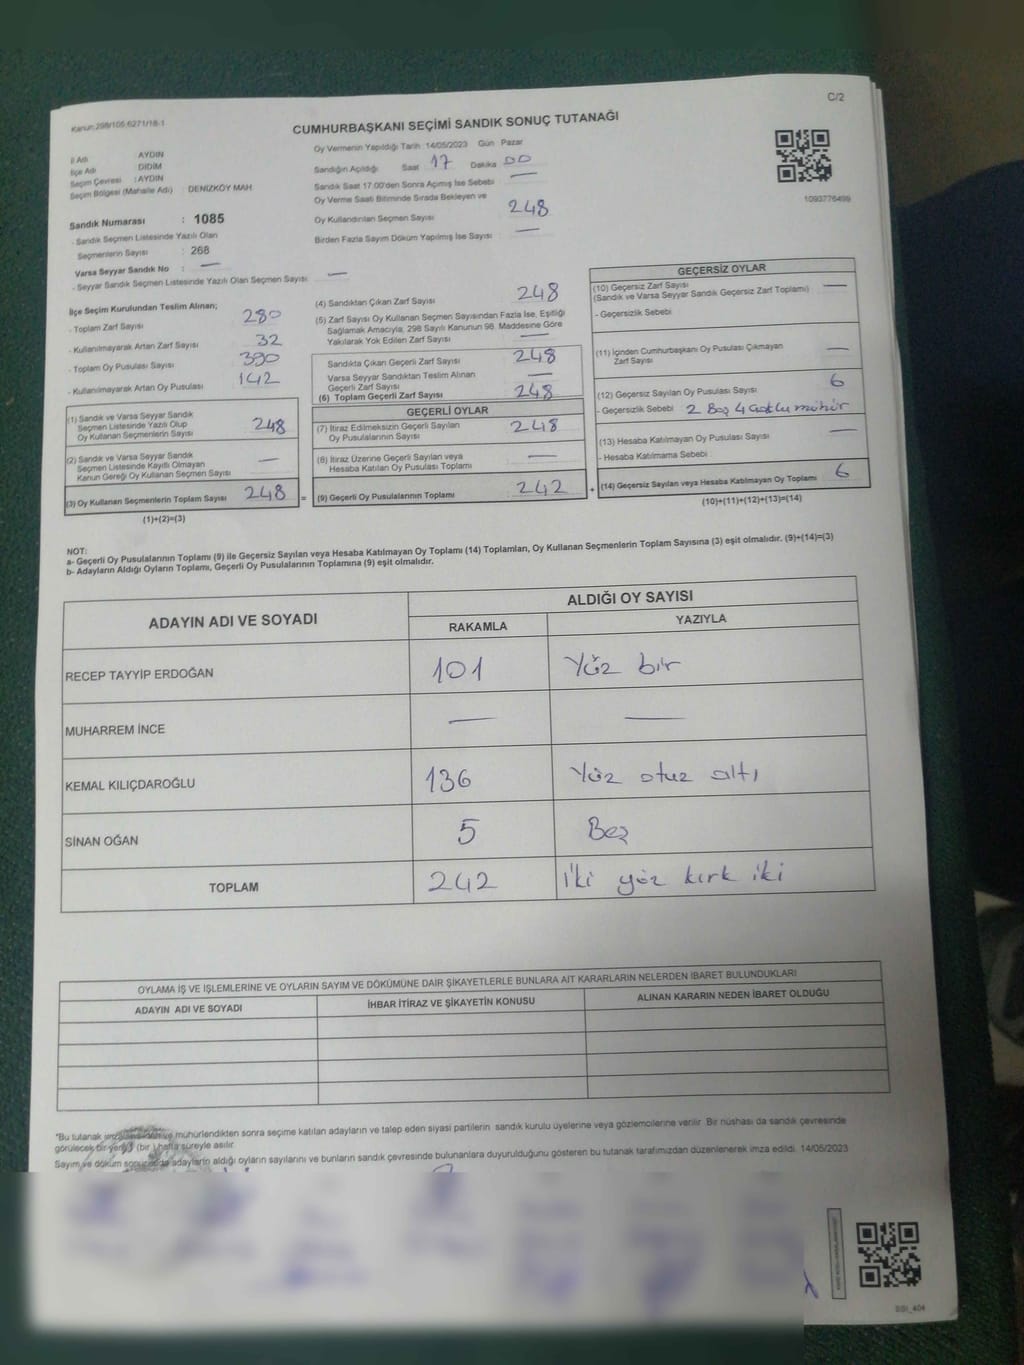 C/2
Kanun:298/105,6271/18-1
CUMHURBAŞKANI SEÇİMİ SANDIK SONUÇ TUTANAĞI
İl Adı AYDIN
İlçe Adı DİDİM
Seçim Çevresi : AYDIN
Seçim Bölgesi (Mahalle Adı) DENİZKÖY MAH
Sandık Numarası : 1085
- Sandık Seçmen Listesinde Yazılı Olan
Seçmenlerin Sayısı : 268
Varsa Seyyar Sandık No : —
- Seyyar Sandık Seçmen Listesinde Yazılı Olan Seçmen Sayısı —
Oy Vermenin Yapıldığı Tarih :14/05/2023 Gün Pazar
Sandığın Açıldığı Saat 17 Dakika 00
Sandık Saat 17:00'den Sonra Açımış İse Sebebi —
Oy Verme Saati Bitiminde Sırada Bekleyen ve
Oy Kullandırılan Seçmen Sayısı 248
Birden Fazla Sayım Döküm Yapılmış İse Sayısı —
1093776499
İlçe Seçim Kurulundan Teslim Alınan;
- Toplam Zarf Sayısı 280
- Kullanılmayarak Artan Zarf Sayısı 32
- Toplam Oy Pusulası Sayısı 390
- Kullanılmayarak Artan Oy Pusulası 142
(1) Sandık ve Varsa Seyyar Sandık
Seçmen Listesinde Yazılı Olup
Oy Kullanan Seçmenlerin Sayısı 248
(2) Sandık ve Varsa Seyyar Sandık
Seçmen Listesinde Kayıtlı Olmayan
Kanun Gereği Oy Kullanan Seçmen Sayısı —
(3) Oy Kullanan Seçmenlerin Toplam Sayısı 248 =
(1)+(2)=(3)
(4) Sandıktan Çıkan Zarf Sayısı 248
(5) Zarf Sayısı Oy Kullanan Seçmen Sayısından Fazla İse, Eşitliği
Sağlamak Amacıyla, 298 Sayılı Kanunun 98. Maddesine Göre
Yakılarak Yok Edilen Zarf Sayısı —
Sandıkta Çıkan Geçerli Zarf Sayısı 248
Varsa Seyyar Sandıktan Teslim Alınan
Geçerli Zarf Sayısı —
(6) Toplam Geçerli Zarf Sayısı 248
GEÇERLİ OYLAR
(7) İtiraz Edilmeksizin Geçerli Sayılan
Oy Pusulalarının Sayısı 248
(8) İtiraz Üzerine Geçerli Sayılan veya
Hesaba Katılan Oy Pusulası Toplamı —
(9) Geçerli Oy Pusulalarının Toplamı 242 +
GEÇERSİZ OYLAR
(10) Geçersiz Zarf Sayısı
(Sandık ve Varsa Seyyar Sandık Geçersiz Zarf Toplamı) —
- Geçersizlik Sebebi
(11) İçinden Cumhurbaşkanı Oy Pusulası Çıkmayan
Zarf Sayısı —
(12) Geçersiz Sayılan Oy Pusulası Sayısı 6
- Geçersizlik Sebebi : 2 Boş 4 Çatlu mühür
(13) Hesaba Katılmayan Oy Pusulası Sayısı —
- Hesaba Katılmama Sebebi :
(14) Geçersiz Sayılan veya Hesaba Katılmayan Oy Toplamı 6
(10)+(11)+(12)+(13)=(14)
NOT:
a- Geçerli Oy Pusulalarının Toplamı (9) ile Geçersiz Sayılan veya Hesaba Katılmayan Oy Toplamı (14) Toplamları, Oy Kullanan Seçmenlerin Toplam Sayısına (3) eşit olmalıdır. (9)+(14)=(3)
b- Adayların Aldığı Oyların Toplamı, Geçerli Oy Pusulalarının Toplamına (9) eşit olmalıdır.
ADAYIN ADI VE SOYADI ALDIĞI OY SAYISI
RAKAMLA YAZIYLA
RECEP TAYYİP ERDOĞAN 101 Yüz bir
MUHARREM İNCE — —
KEMAL KILIÇDAROĞLU 136 Yüz otuz altı
SİNAN OĞAN 5 Beş
TOPLAM 242 iki yüz kırk iki
OYLAMA İŞ VE İŞLEMLERİNE VE OYLARIN SAYIM VE DÖKÜMÜNE DAİR ŞİKAYETLERLE BUNLARA AİT KARARLARIN NELERDEN İBARET BULUNDUKLARI
ADAYIN ADI VE SOYADI İHBAR İTİRAZ VE ŞİKAYETİN KONUSU ALINAN KARARIN NEDEN İBARET OLDUĞU
*Bu tutanak mühürlendikten sonra seçime katılan adayların ve talep eden siyasi partilerin sandık kurulu üyelerine veya gözlemcilerine verilir. Bir nüshası da sandık çevresinde
görülecek bir yere (bir) hafta süreyle asılır.
Sayım ve döküm sonucunda adayların aldığı oyların sayılarını ve bunların sandık çevresinde bulunanlara duyurulduğunu gösteren bu tutanak tarafımızdan düzenlenerek imza edildi. 14/05/2023
SSI_404